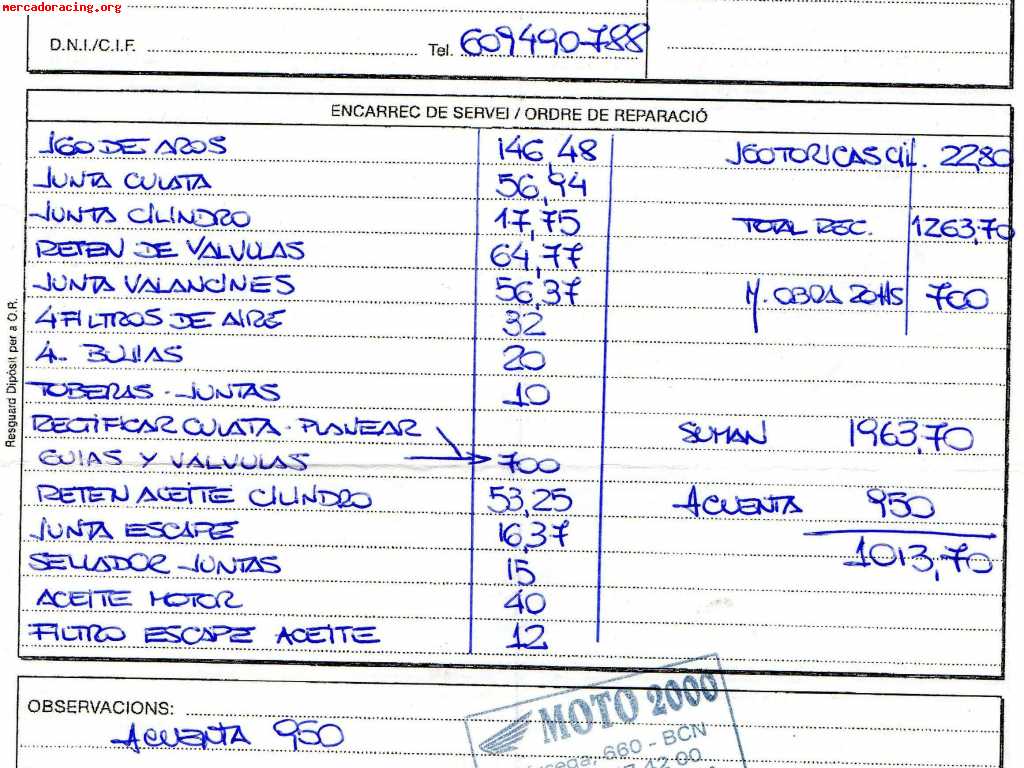 mercadoracing.org
D.N.I./C.I.F. Tel. 609490788
ENCARREC DE SERVEI / ORDRE DE REPARACIÓ
JGO DE AROS 146,48
JUNTA CULATA 56,94
JUNTA CILINDRO 17,75
RETEN DE VALVULAS 64,77
JUNTA VALANCINES 56,37
4 FILTROS DE AIRE 32
4 BUJIAS 20
TOBERAS - JUNTAS 10
RECTIFICAR CULATA - PLANEAR
GUIAS Y VALVULAS 700
RETEN ACEITE CILINDRO 53,25
JUNTA ESCAPE 16,37
SELLADOR JUNTAS 15
ACEITE MOTOR 40
FILTRO ESCAPE ACEITE 12
JGO TORICAS CIL. 22,80
TOTAL REC. 1263,70
M. OBRA 20 HS 700
SUMAN 1963,70
ACUENTA 950
1013,70
Resguard Dipòsit per a O.R.
OBSERVACIONS:
ACUENTA 950
MOTO 2000
660 - BCN
42 00